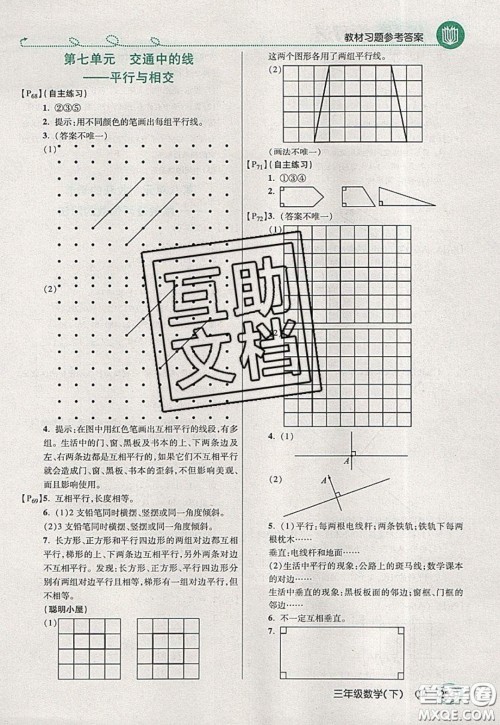 教材习题参考答案
第七单元 交通中的线
——平行与相交
【P68】(自主练习)
1. ②③⑤
2. 提示：用不同颜色的笔画出每组平行线。
3. (答案不唯一)
(1)
(2)
4. 提示：在图中用红色笔画出互相平行的线段，有多
组。生活中的门、窗、黑板的上、下两条边及左、
右两条边都是互相平行的。如果它们不互相平行
就会造成门、窗、黑板等的歪斜，不但影响美观，
而且影响使用。
【P69】5. 互相平行，长度相等。
6. (1)2支铅笔同时横摆、竖摆或同一角度倾斜。
(2)3支铅笔同时横摆、竖摆或同一角度倾斜。
7. 长方形、正方形和平行四边形的两组对边都互相
平行。梯形的上、下两条对边互相平行，另外两条
对边不平行。发现：长方形、正方形、平行四边形
分别有两组对边平行，梯形有一组对边平行。
(聪明小屋)
(1)
这两个图形各用了两组平行线。
(2)
(画法不唯一)
【P71】(自主练习)
1. ①③④
2.
【P72】3. (答案不唯一)
互助
文档
4. (1)
A
(2)
A
5. (1)平行：每两根电线杆；两条铁轨；铁轨下面每两
根枕木……
垂直：电线杆与地面……
(2)生活中平行的现象：公路上的斑马线；数学课本
的对边……
生活中垂直的现象：黑板面的邻边；窗框、门框的
邻边……
6. 不一定互相垂直。
7.
三年级数学(下)